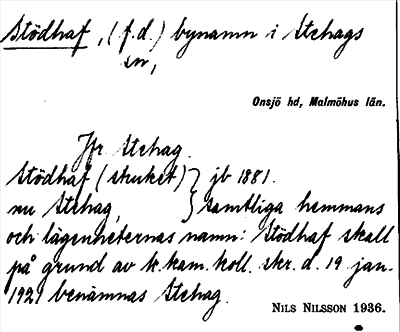 Stödhaf, (f.d.) bynamn i Stehags
sn,
Onsjö hd, Malmöhus län.
Jfr Stehag.
Stödhaf (struket) } jb 1881.
nu Stehag, } samtliga hemmans
och lägenheternas namn: Stödhaf skall
på grund av k. kam. koll. skr. d. 19 jan.
1921 benämnas Stehag.
NILS NILSSON 1936.